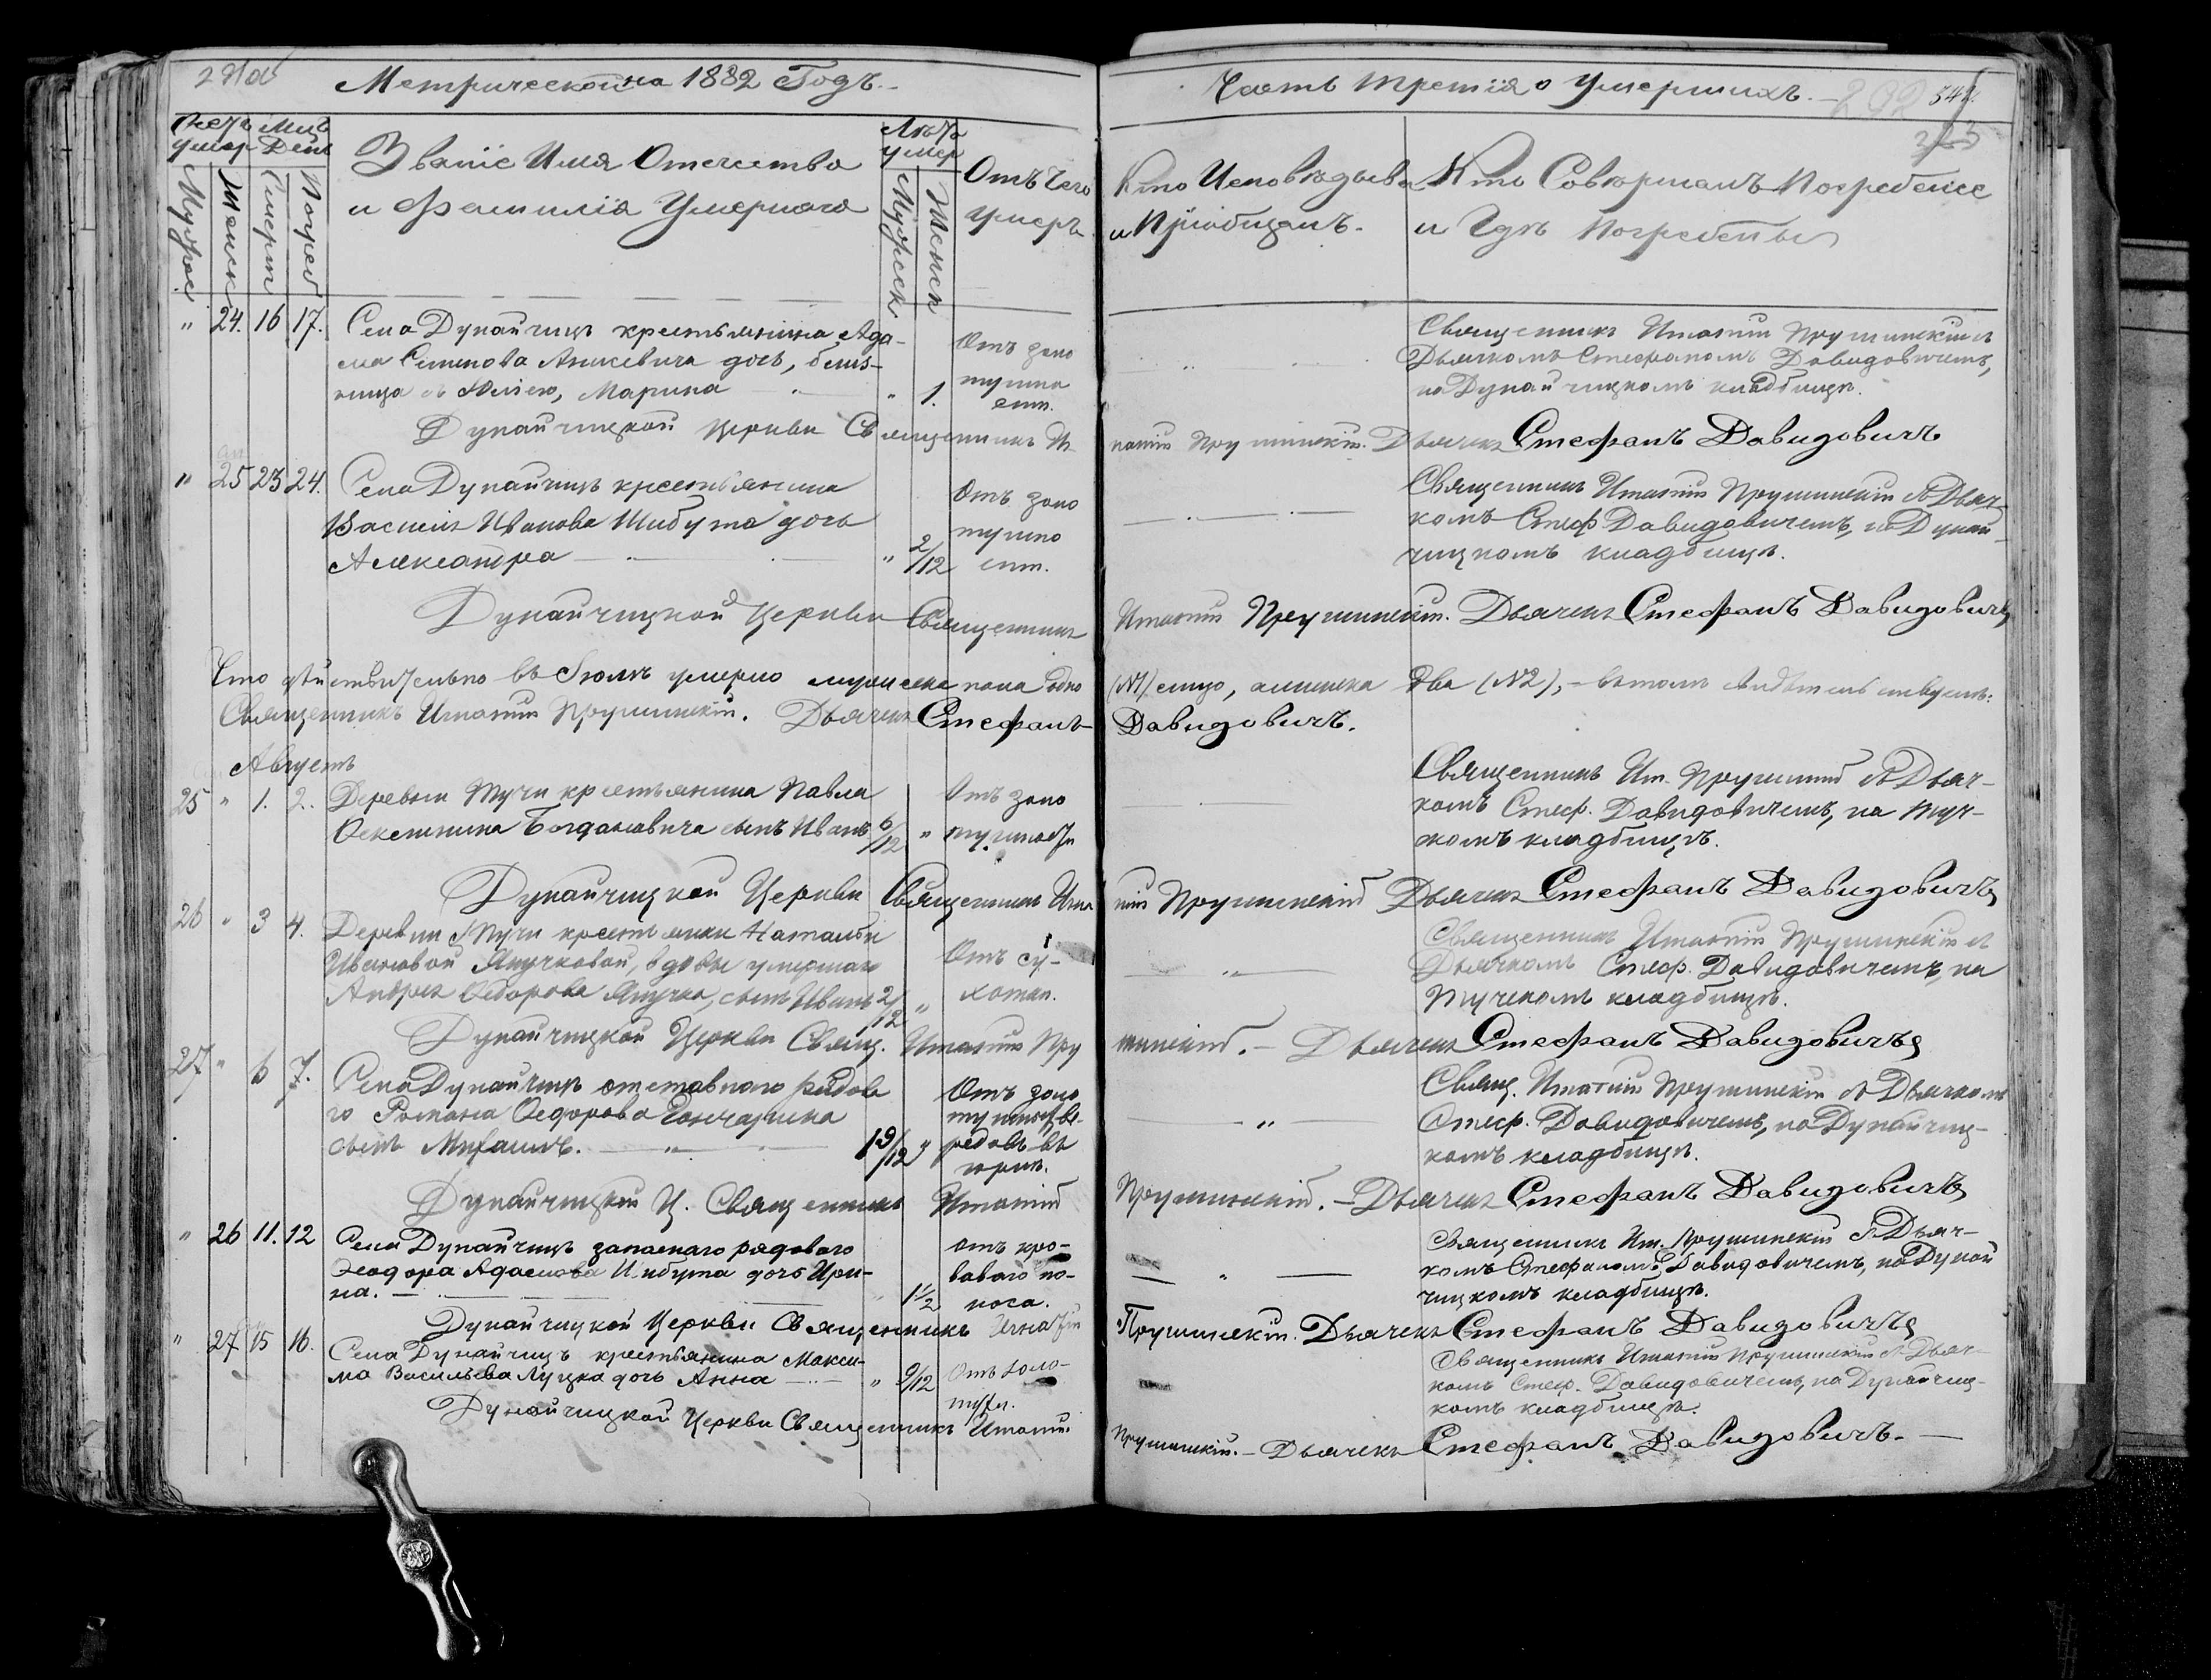 Метрической на 1882 Годъ.
Часть третія о Умершихъ.
Счетъ умер
Мцъ День
Званіе Имя Отечество
и Фамилія Умершаго
Лета умер
Отъ чего
умеръ
Мужеск
Женск
Смерт
Погреб
Мужеск
Женск
Кто Исповедыва
и Пріобщалъ.
Кто Совершалъ Погребеніе
и Где Погребены
" 24. 16 17.
Села Дунайчицъ крестьянина Ада-
ма Семенова Анкевича дочь, близ-
ница съ Юліею, Марина " 1.
Отъ золо
тушно
сти.
Священникъ Игнатій Прушинскій съ
Дьячкомъ Стефаномъ Давидовичемъ,
на Дунайчицкомъ кладбище.
Дунайчицкой Церкви Священникъ Иг
натій Прушинскій. Дьячекъ Стефанъ Давидовичъ
" 25 23 24.
Села Дунайчицъ крестьянина
Василія Иванова Шибута дочь
Александра " 2/12
Отъ золо
тушно
сти.
Священникъ Игнатій Прушинскій съ Дьяч-
комъ Стеф. Давидовичемъ, на Дунай-
чицкомъ кладбище.
Дунайчицкой Церкви Священникъ
Игнатій Прушинскій. Дьячекъ Стефанъ Давидовичъ
Что действительно въ Іюле умерло мужеска пола одно
(№1) лицо, а женска два (№2), – въ томъ свидетельствуемъ:
Священникъ Игнатій Прушинскій. Дьячекъ Стефанъ
Давидовичъ.
Августъ
25 " 1. 2.
Деревни Тучи крестьянина Павла
Ослетина Богдановича сынъ Иванъ 6/12 "
Отъ золо
тушности
Священникъ Иг. Прушинскій съ Дьяч-
комъ Стеф. Давидовичемъ, на Туч-
комъ кладбище.
Дунайчицкой Церкви Священникъ Игна
тій Прушинскій Дьячекъ Стефанъ Давидовичъ
26 " 3 4.
Деревни Тучи крестьянки Натальи
Ивановой Янучковой, вдовы умершаго
Андрея Федорова Янучка, сынъ Иванъ 2/12 "
Отъ су-
хотки.
Священникъ Игнатій Прушинскій съ
Дьячкомъ Стеф. Давидовичемъ, на
Тучскомъ кладбище.
Дунайчицкой Церкви Свящ. Игнатій Пру
шинскій. – Дьячекъ Стефанъ Давидовичъ
27 " 6 7.
Села Дунайчицъ отставного рядово
го Романа Федорова Гончарика
сынъ Михаилъ. 19/12 "
Отъ золо
редовъ въ
горле.
Свящ. Игнатій Прушинскій съ Дьячкомъ
Стеф. Давидовичемъ, на Дунайчиц-
комъ кладбище.
Дунайчицкой Ц. Священникъ Игнатій
Прушинскій. – Дьячекъ Стефанъ Давидовичъ
" 26 11. 12
Села Дунайчицъ запаснаго рядового
Феодора Адамова Шибута дочь Ири-
на. 1 1/2
Отъ кро-
ваваго по-
носа.
Священникъ Иг. Прушинскій съ Дьяч-
комъ Стефаномъ Давидовичемъ, на Дунай
чицкомъ кладбище.
Дунайчицкой Церкви Священникъ Игнатій
Прушинскій. Дьячекъ Стефанъ Давидовичъ
" 27 15 16.
Села Дунайчицъ крестьянина Макси-
ма Васильева Луцка дочь Анна " 9/12
Отъ золо-
тухи.
Священникъ Игнатій Прушинскій съ Дьяч-
комъ Стеф. Давидовичемъ, на Дунайчиц-
комъ кладбище.
Дунайчицкой Церкви Священникъ Игнатій
Прушинскій. – Дьячекъ Стефанъ Давидовичъ. –